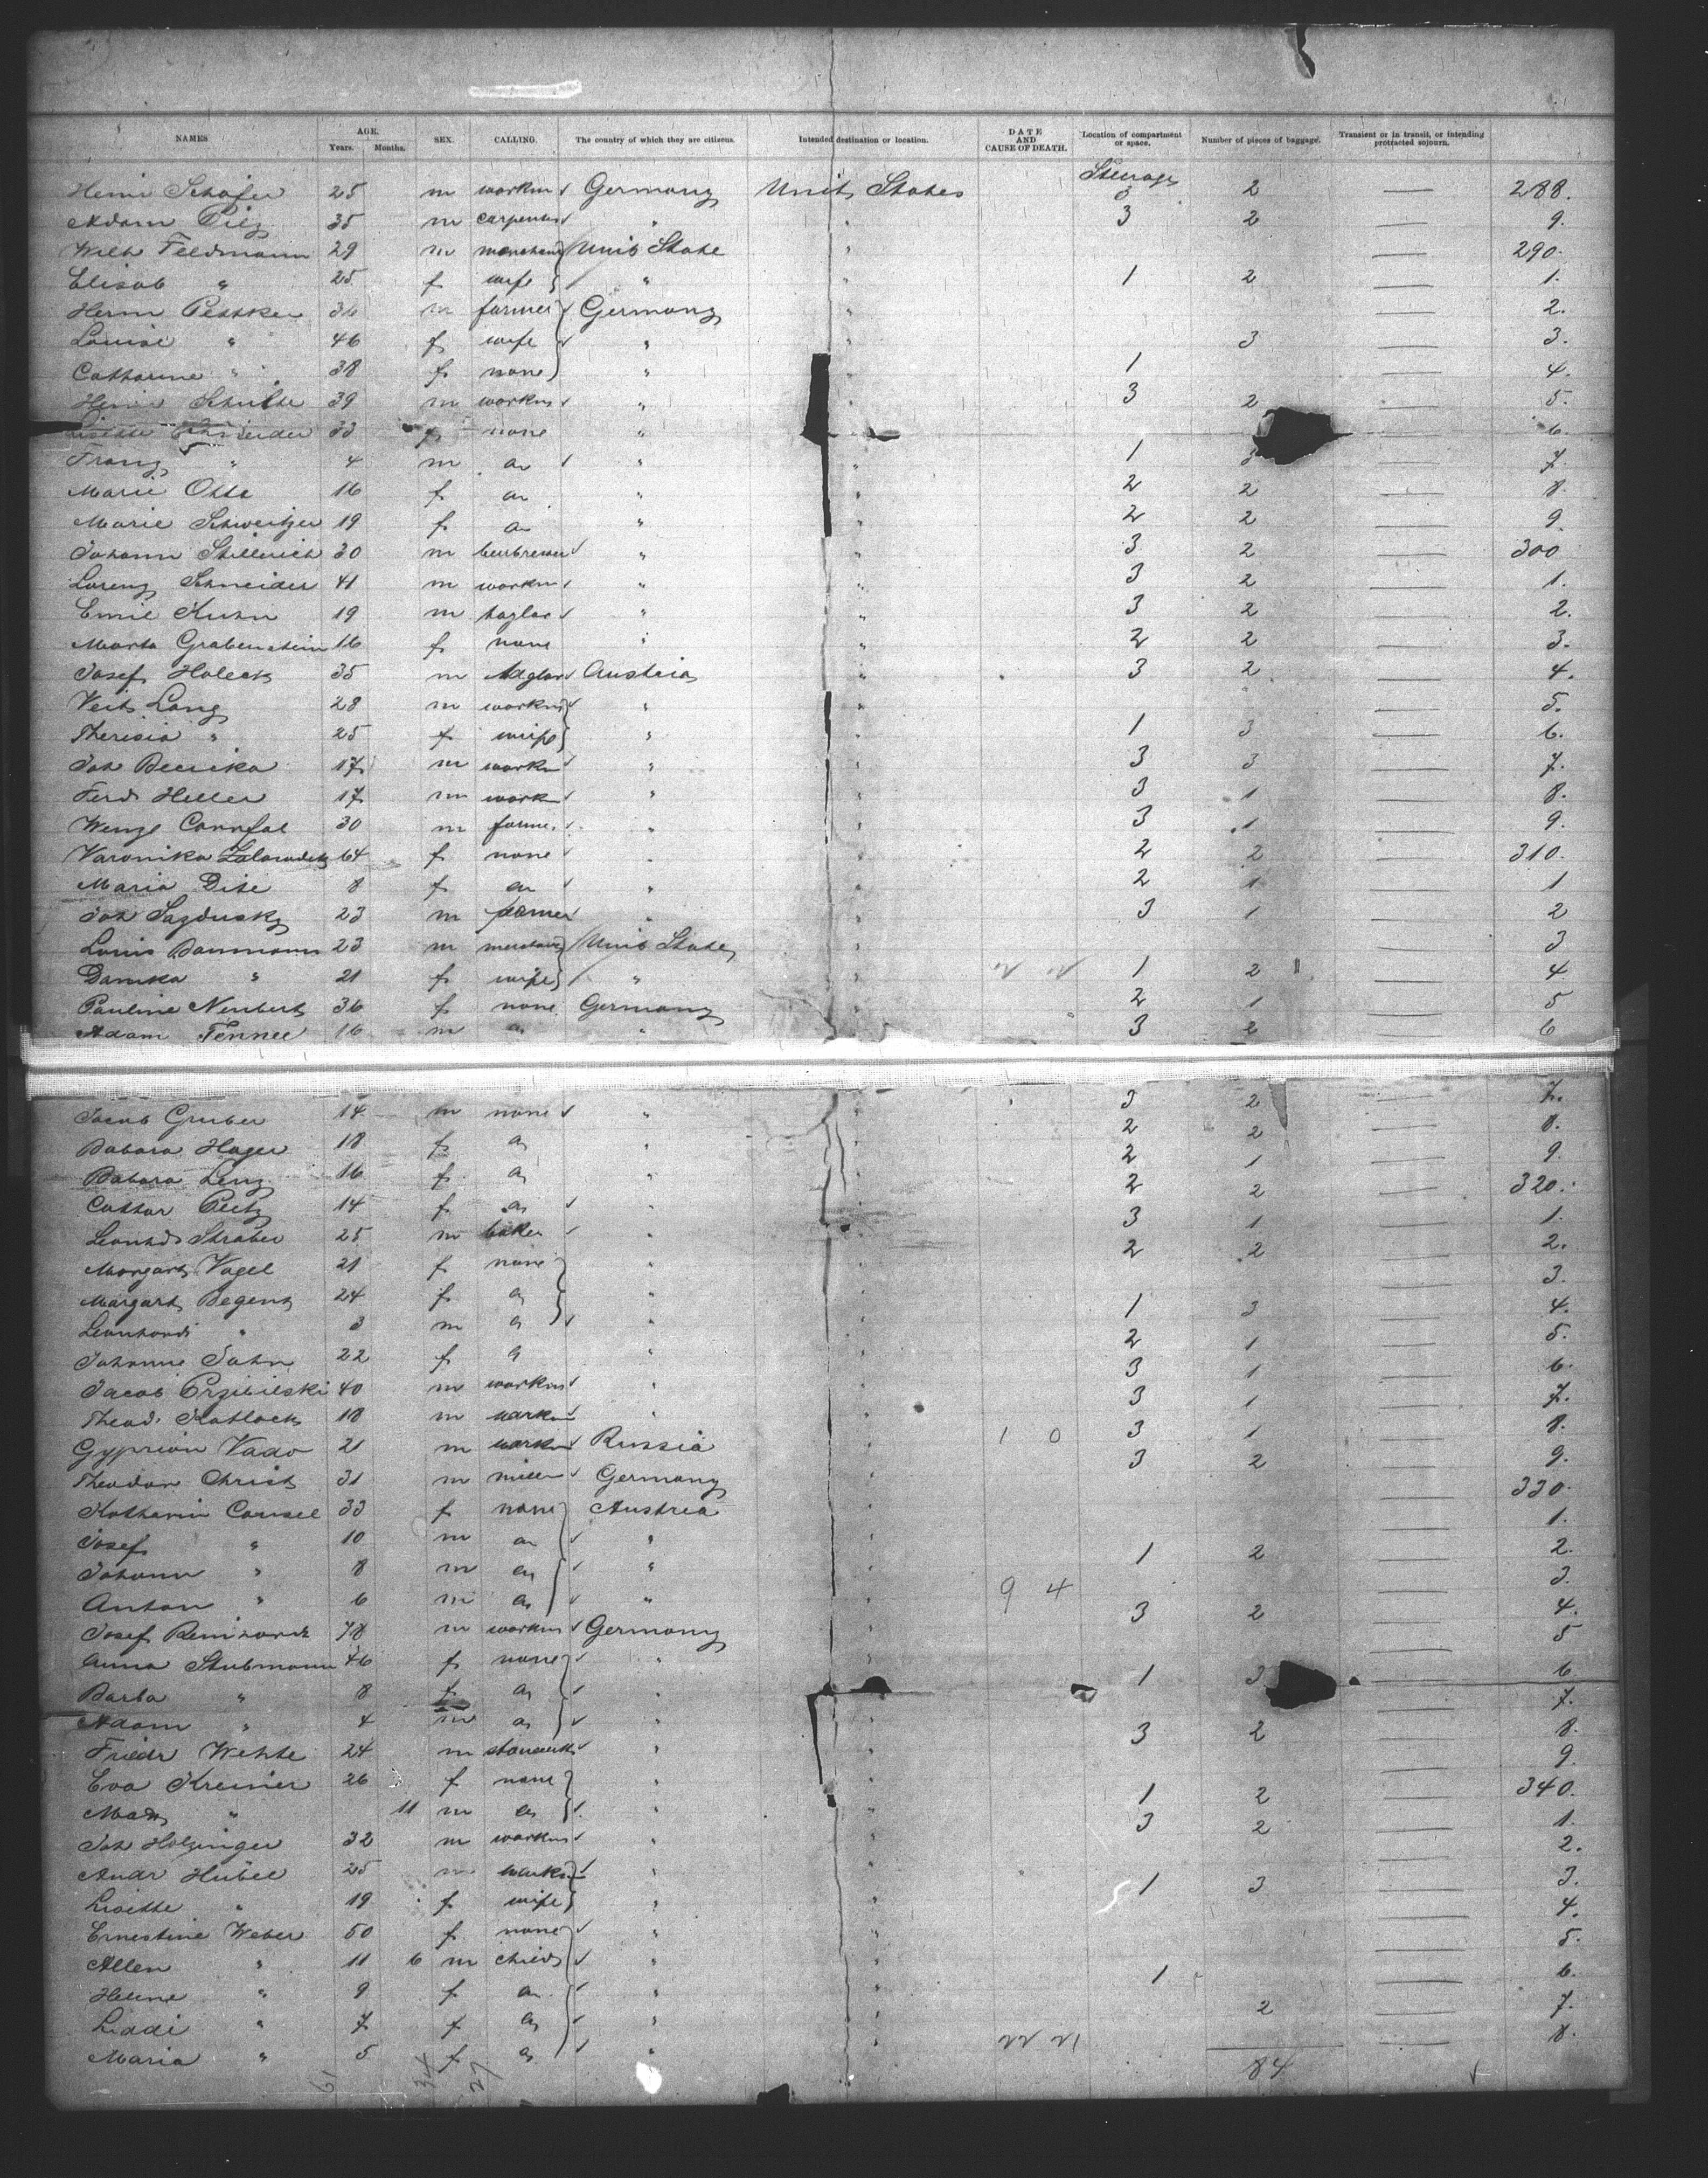 NAMES AGE. Years. Months. SEX. CALLING. The country of which they are citizens. Intended destination or location. DATE AND CAUSE OF DEATH. Location of compartment or space. Number of pieces of baggage. Transient or in transit, or intending protracted sojourn.
Steurage
Henri Schäfer 25 m workm Germany Unit States 3 2 — 288.
Adam Pilz 35 m carpenter " " 3 2 — 9.
Wilh Feldmann 29 m Unit State " — 290.
Elisab " 25 f wife " " 1 2 — 1.
Herm Pettker m farmer Germany " — 2.
Louise " 46 f wife " " 3 3.
Catharine " 38 f none " " 1 — 4.
Henri Schulte 39 m workm " 3 2 — 5.
Schneider 33 f none " — 6.
Franz " 4 m a " " 1 3 — 7.
Marie Otte 16 f a " " 2 2 — 8.
Marie Schweitzer 19 f a " " 2 2 — 9.
Johann 30 m " " 3 2 — 300
Lorenz Schneider 41 m workm " " 3 2 — 1.
Emil Kuhn 19 m " " 3 2 — 2.
Marta Grabenstein 16 f none " " 2 2 — 3.
Josef Holeck 35 m Austria " 3 2 — 4.
Veit Lang 28 m workm " " — 5.
Theresia " 25 f wife " " 1 3 — 6.
Joh 17 m workm " " 3 3 — 7.
Ferd Heller 17 m work " " 3 1 — 8.
Wenzl 30 m farmer " " 3 1 — 9.
Varonika 64 f none " " 2 2 — 310.
Maria Dite 8 f a " " 2 1 — 1
Joh Sazdusky 23 m farmer " " 3 1 — 2
Louis Baumann 23 m Unit State " — 3
" 21 f wife " " 1 2 — 4
Pauline Neubert 36 f none Germany 2 1 — 5
Adam Fennel 16 m a " 3 2 — 6
Jacob Gruber 14 m none " " 3 2 — 7.
Babara Hager 18 f a " " 2 2 — 8.
Babara Lenz 16 f a " " 2 1 — 9
Cathar Peetz 14 f a " " 2 2 — 320.
Leonhd Straber 25 m baker " 3 1 — 1.
Margart Vogel 21 f none " " 2 2 — 2.
Margart Begent 24 f a " " — 3.
Leonhard " 3 m a " " 1 3 — 4.
Johanne Jahn 22 f a " " 2 1 — 5.
Jacob Przibilski 40 m workm " " 3 1 — 6.
Theod. Katlack 18 m workm " " 3 1 — 7.
Gyprion Vado 21 m workm Russia " 1 0 3 1 — 8.
Theodor Christ 31 m miller Germany " 3 2 — 9.
Katharin Consel 33 f none Austria " — 330.
Josef " 10 m a " " — 1.
Johann " 8 m a " " 1 2 — 2.
Anton " 6 m a " " 9 4 — 3.
Josef Reinhardt 78 m workm Germany " 3 2 — 4.
Anna Stubmann 46 f none " " — 5
Barba " 8 f a " " 1 3 — 6
Adam " 4 m a " " — 7.
Friedr Wehte 24 m " " 3 2 — 8.
Eva Kremer 26 f none " " — 9.
" 11 m a " " 1 2 — 340.
Joh Holzinger 32 m workm " " 3 2 — 1.
Andr Hübel 25 m workm " " — 2.
Lisette " 19 f wife " " 1 3 — 3.
Ernestine Weber 50 f none " " — 4.
Allen " 11 6 m child " " — 5.
Helene " 9 f a " " 1 — 6.
Liddi " 7 f a " " 2 — 7.
Maria " 5 f a " " — 8.
61 34 27 84